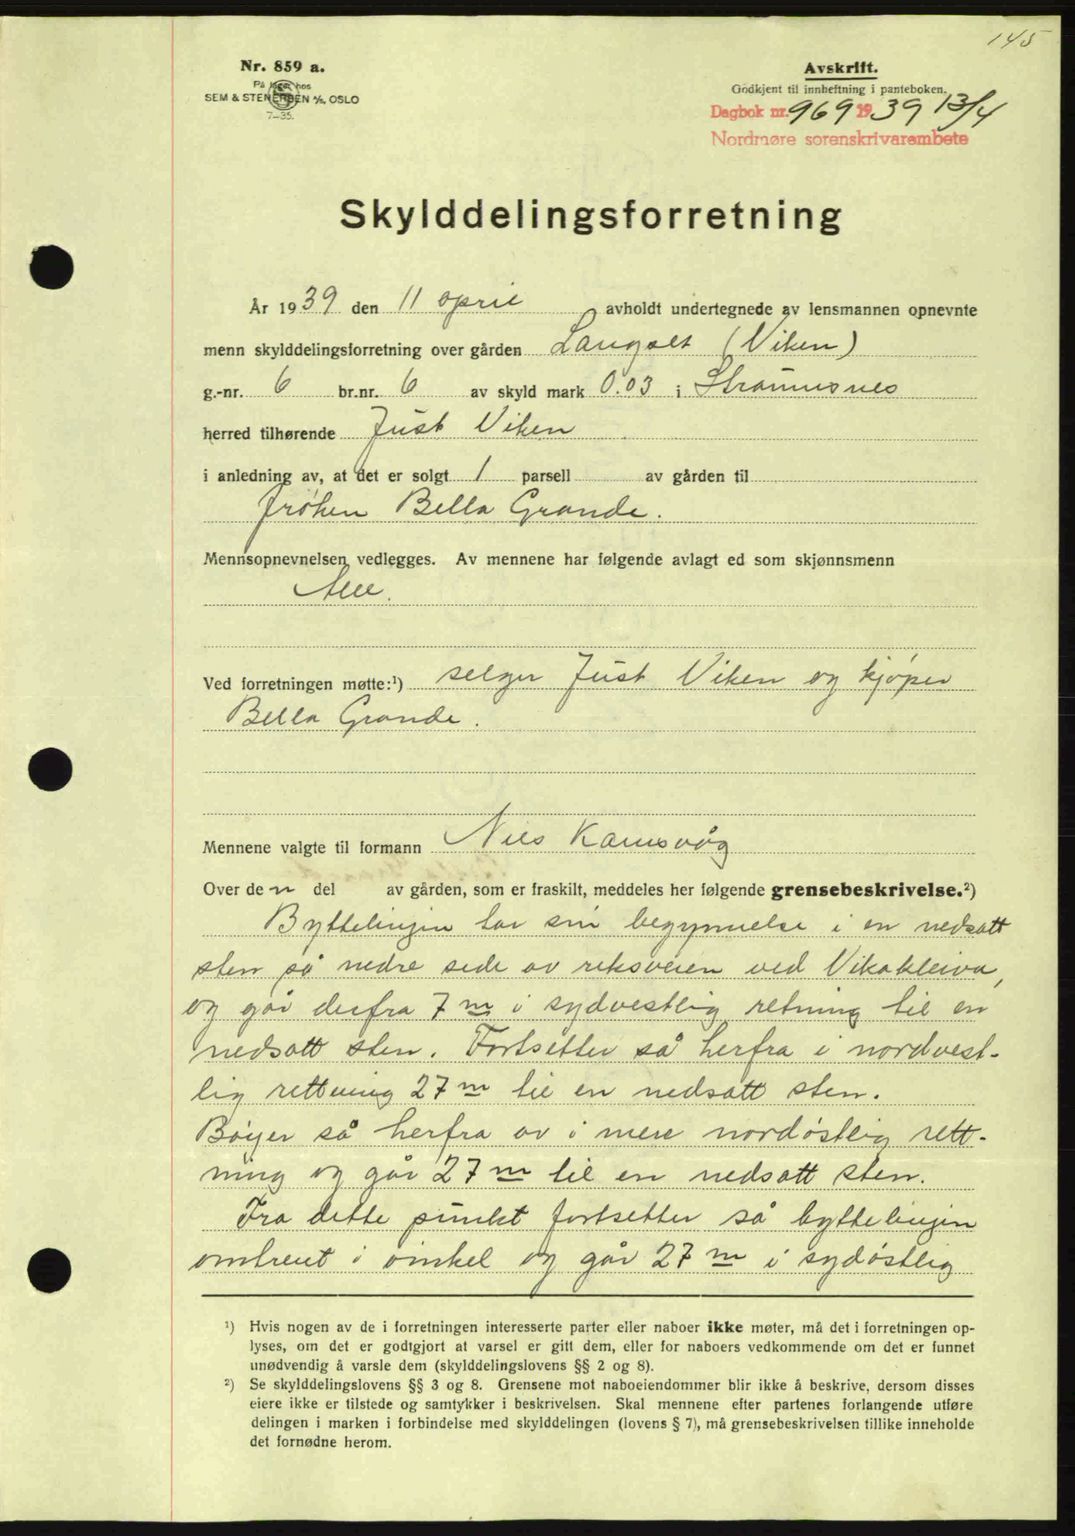 145
Nr. 859 a.
På lager hos
SEM & STENERSEN A/S, OSLO
7-35.
Avskrift.
Godkjent til innheftning i panteboken.
Dagbok nr. 969 1939 13/4
Nordmøre sorenskrivarembete
Skylddelingsforretning
År 1939 den 11 april avholdt undertegnede av lensmannen opnevnte
menn skylddelingsforretning over gården Langset (Viken)
g.-nr. 6 br.nr. 6 av skyld mark 0.03 i Straumsnes
herred tilhørende Just Viken
i anledning av, at det er solgt 1 parsell av gården til
frøken Bella Grande.
Mennsopnevnelsen vedlegges. Av mennene har følgende avlagt ed som skjønnsmenn
Alle.
Ved forretningen møtte:¹) selger Just Viken og kjøper
Bella Grande.
Mennene valgte til formann Nils Kamsvåg
Over den del av gården, som er fraskilt, meddeles her følgende grensebeskrivelse.²)
Byttelinjen tar sin begynnelse i en nedsatt
sten på nedre side av riksveien ved Vikakleiva,
og går derfra 7 m i sydvestlig retning til en
nedsatt sten. Fortsetter så herfra i nordvest-
lig rettning 27 m til en nedsatt sten.
Bøyer så herfra av i mere nordøstlig rett-
ning og går 27 m til en nedsatt sten.
Fra dette punkt fortsetter så byttelinjen
omtrent i vinkel og går 27 m i sydøstlig
¹) Hvis nogen av de i forretningen interesserte parter eller naboer ikke møter, må det i forretningen op-
lyses, om det er godtgjort at varsel er gitt dem, eller for naboers vedkommende om det er funnet
unødvendig å varsle dem (skylddelingslovens §§ 2 og 8).
²) Se skylddelingslovens §§ 3 og 8. Grensene mot naboeiendommer blir ikke å beskrive, dersom disses
eiere ikke er tilstede og samtykker i beskrivelsen. Skal mennene efter partenes forlangende utføre
delingen i marken i forbindelse med skylddelingen (lovens § 7), må grensebeskrivelsen tillike inneholde
det fornødne herom.